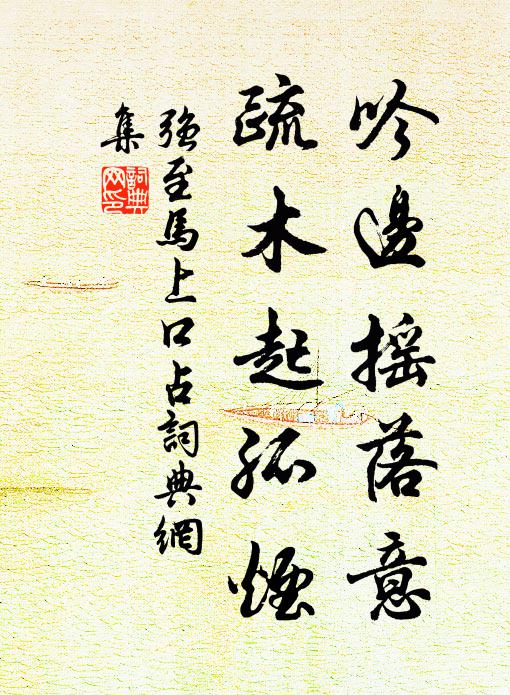 吟邊摇落意
疏木起孤煙
强至馬上口占詞典網
集
詞典
网印